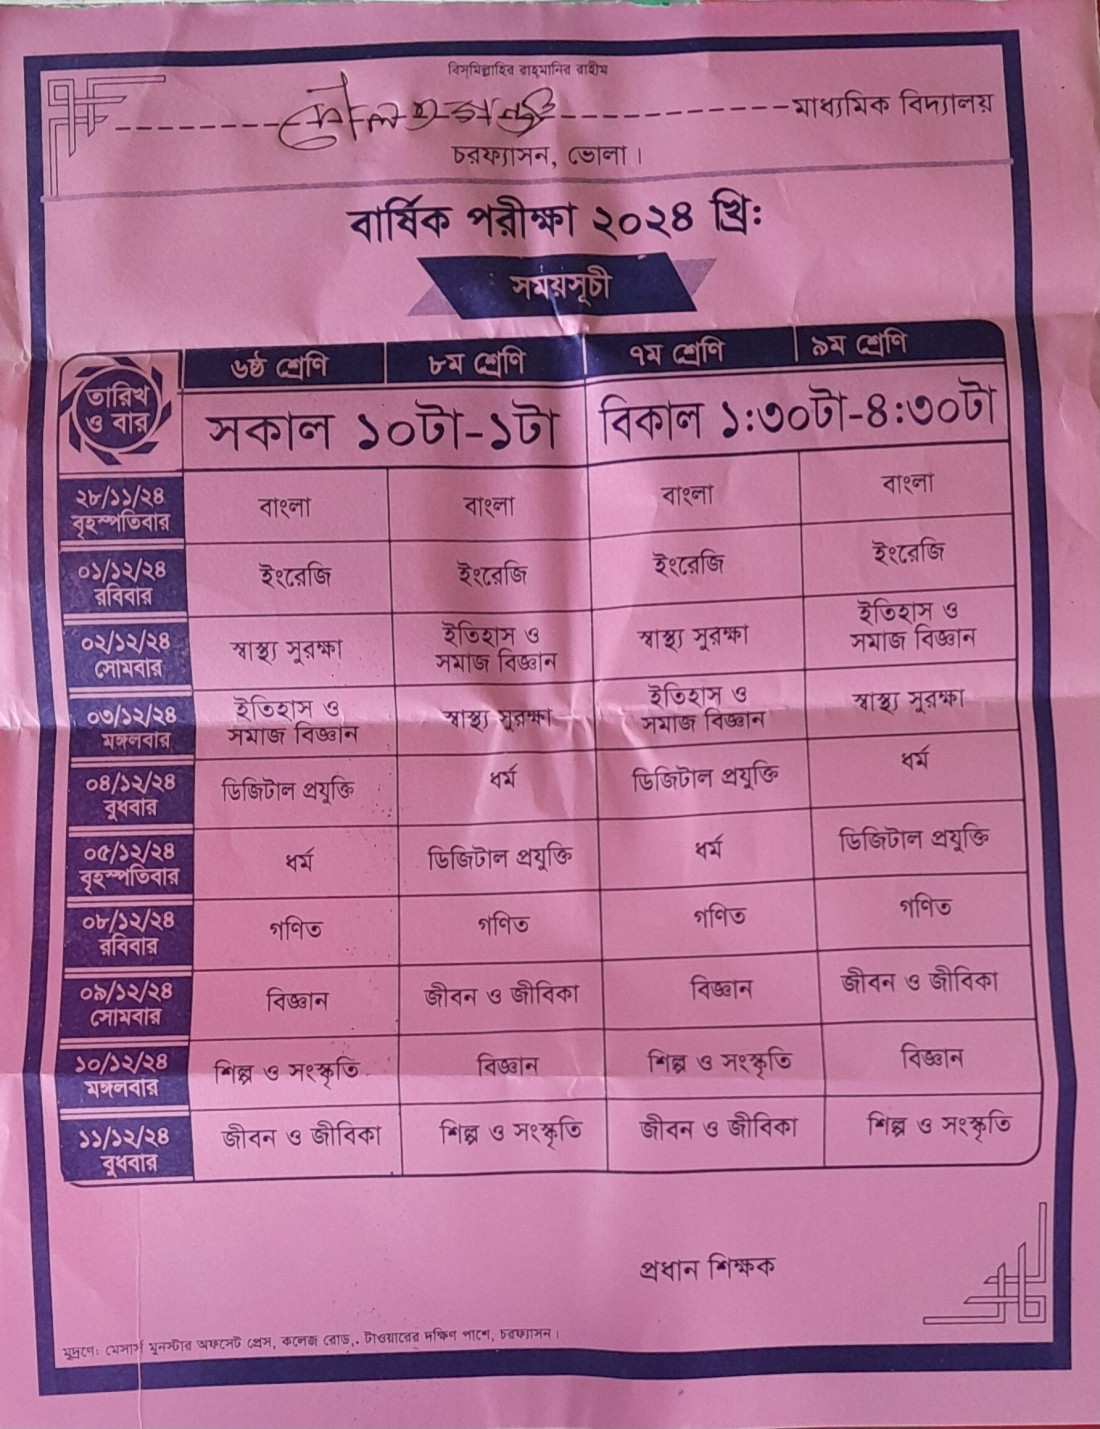 বিসমিল্লাহির রাহমানির রাহীম
মাধ্যমিক বিদ্যালয়
চরফ্যাসন, ভোলা।
বার্ষিক পরীক্ষা ২০২৪ খ্রিঃ
সময়সূচী
তারিখ ও বার ৬ষ্ঠ শ্রেণি ৮ম শ্রেণি ৭ম শ্রেণি ৯ম শ্রেণি
সকাল ১০টা-১টা বিকাল ১:৩০টা-৪:৩০টা
২৮/১১/২৪ বৃহস্পতিবার বাংলা বাংলা বাংলা বাংলা
০১/১২/২৪ রবিবার ইংরেজি ইংরেজি ইংরেজি ইংরেজি
০২/১২/২৪ সোমবার স্বাস্থ্য সুরক্ষা ইতিহাস ও সমাজ বিজ্ঞান স্বাস্থ্য সুরক্ষা ইতিহাস ও সমাজ বিজ্ঞান
০৩/১২/২৪ মঙ্গলবার ইতিহাস ও সমাজ বিজ্ঞান স্বাস্থ্য সুরক্ষা ইতিহাস ও সমাজ বিজ্ঞান স্বাস্থ্য সুরক্ষা
০৪/১২/২৪ বুধবার ডিজিটাল প্রযুক্তি ধর্ম ডিজিটাল প্রযুক্তি ধর্ম
০৫/১২/২৪ বৃহস্পতিবার ধর্ম ডিজিটাল প্রযুক্তি ধর্ম ডিজিটাল প্রযুক্তি
০৮/১২/২৪ রবিবার গণিত গণিত গণিত গণিত
০৯/১২/২৪ সোমবার বিজ্ঞান জীবন ও জীবিকা বিজ্ঞান জীবন ও জীবিকা
১০/১২/২৪ মঙ্গলবার শিল্প ও সংস্কৃতি বিজ্ঞান শিল্প ও সংস্কৃতি বিজ্ঞান
১১/১২/২৪ বুধবার জীবন ও জীবিকা শিল্প ও সংস্কৃতি জীবন ও জীবিকা শিল্প ও সংস্কৃতি
প্রধান শিক্ষক
মুদ্রণে: মেসার্স মুনস্টার অফসেট প্রেস, কলেজ রোড, টাওয়ারের দক্ষিণ পাশে, চরফ্যাসন।